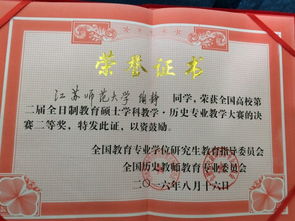 荣誉证书
江苏师范大学 同学，荣获全国高校第
二届全日制教育硕士学科教学·历史专业教学大赛的决
赛二等奖，特发此证，以资鼓励。
全国教育专业学位研究生教育指导委员会
全国历史教师教育专业委员会
二〇一六年八月十六日